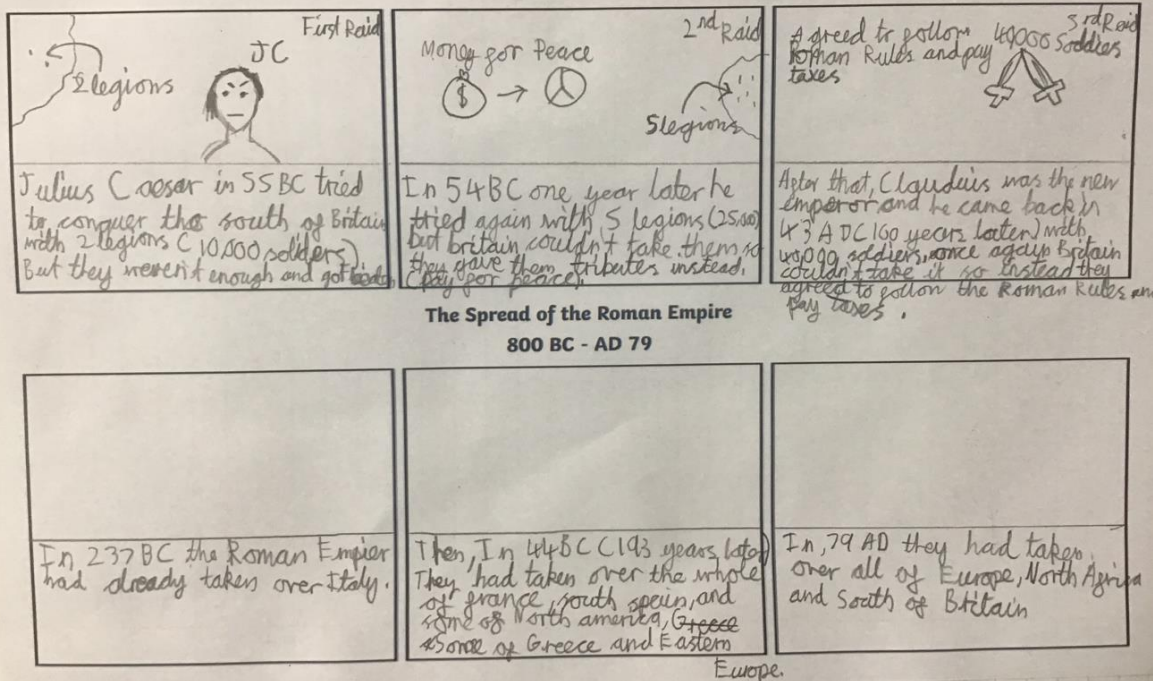 First Raid
JC
2 legions
Julius Caesar in 55 BC tried
to conquer the south of Britain
with 2 legions (10,000 soliders)
But they weren't enough and got
2nd Raid
Money for Peace
$
5 legions
In 54 BC one year later he
tried again with 5 legions (25,000)
but britain couldn't take them so
they gave them tributes instead.
(pay for peace).
3rd Raid
Agreed to follow
Roman Rules and pay
taxes
40000 Soddies
After that, Claudius was the new
emperor and he came back in
43 AD (100 years later) with
40,000 soldiers, once again Britain
couldn't take it so instead they
agreed to follow the Roman Rules and
pay taxes.
The Spread of the Roman Empire
800 BC - AD 79
In 237 BC the Roman Empier
had already taken over Italy.
Then, In 44 BC (193 years later)
They had taken over the whole
of france, south spein, and
some of North america, Greece
Some of Greece and Eastern
Europe.
In, 79 AD they had taken
over all of Europe, North Africa
and South of Britain